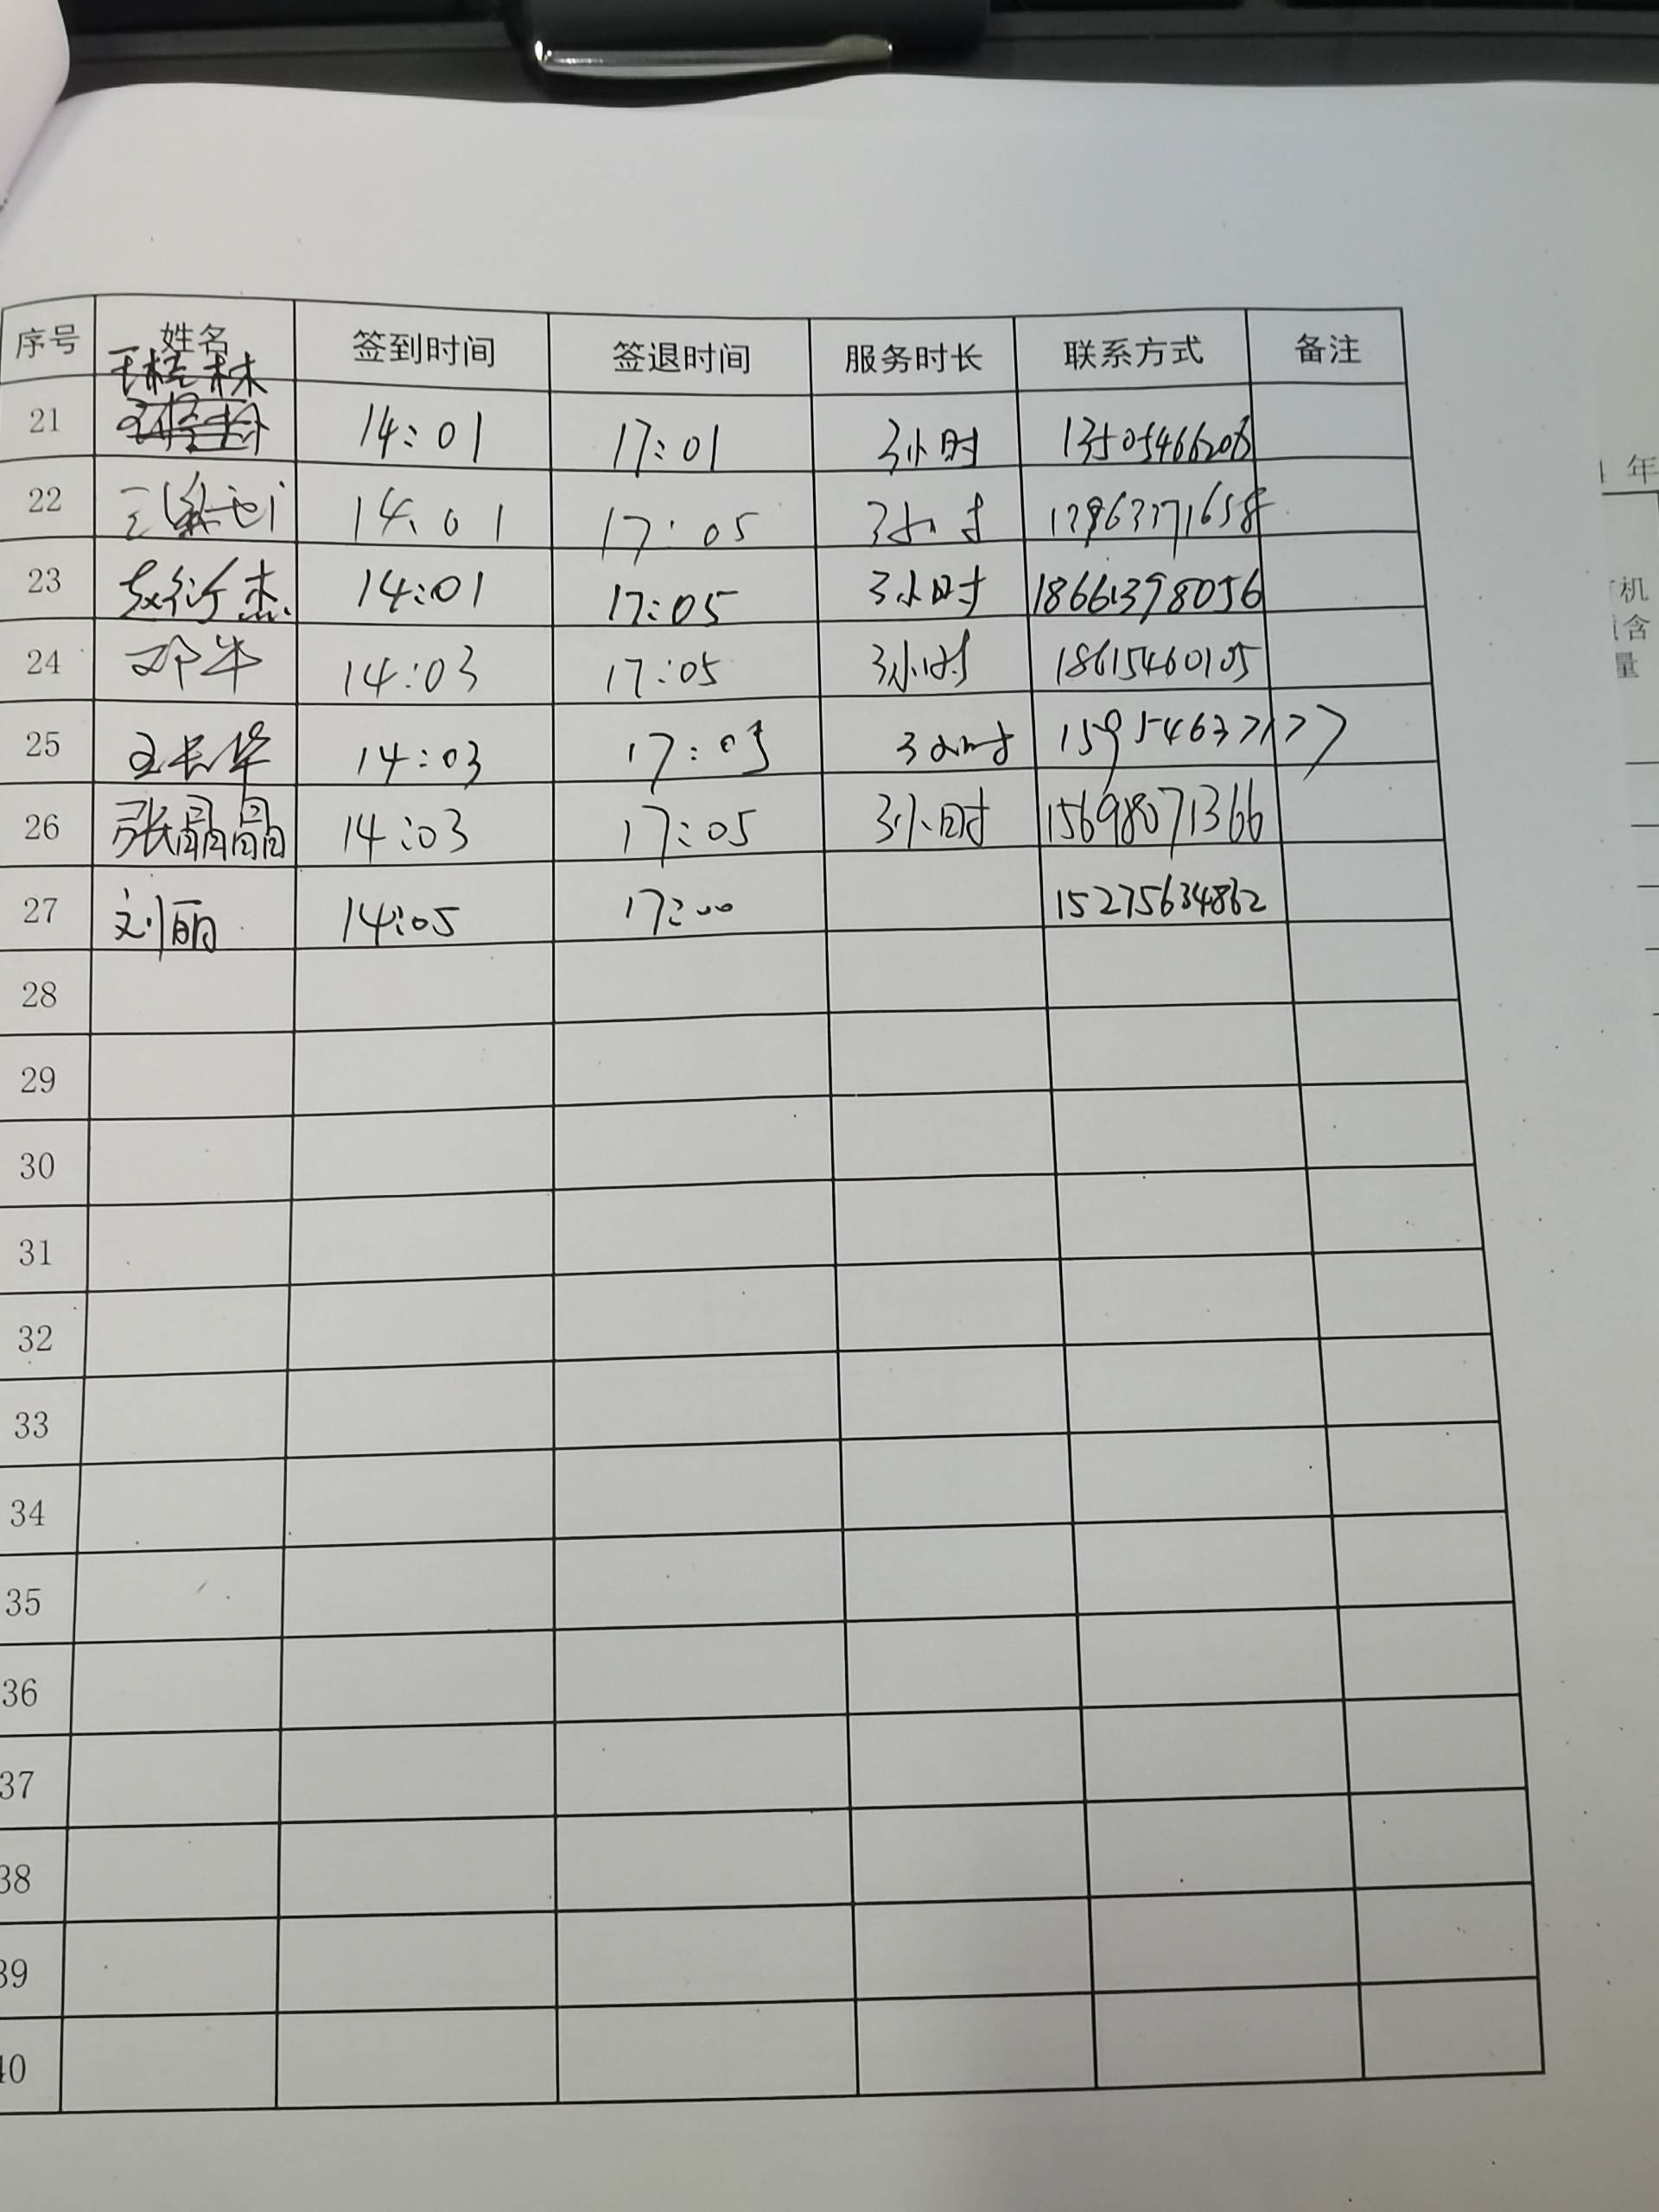 序号 姓名 签到时间 签退时间 服务时长 联系方式 备注
21 14:01 17:01 3小时
22 14:01 17:05 3小时
23 14:01 17:05 3小时 18661398056
24 邓华 14:03 17:05 3小时 18615460105
25 王长华 14:03 17:05 3小时
26 张晶晶 14:03 17:05 3小时 15698071366
27 刘丽 14:05 17:00 15275634862
28
29
30
31
32
33
34
35
36
37
38
39
40
年
机
含
量